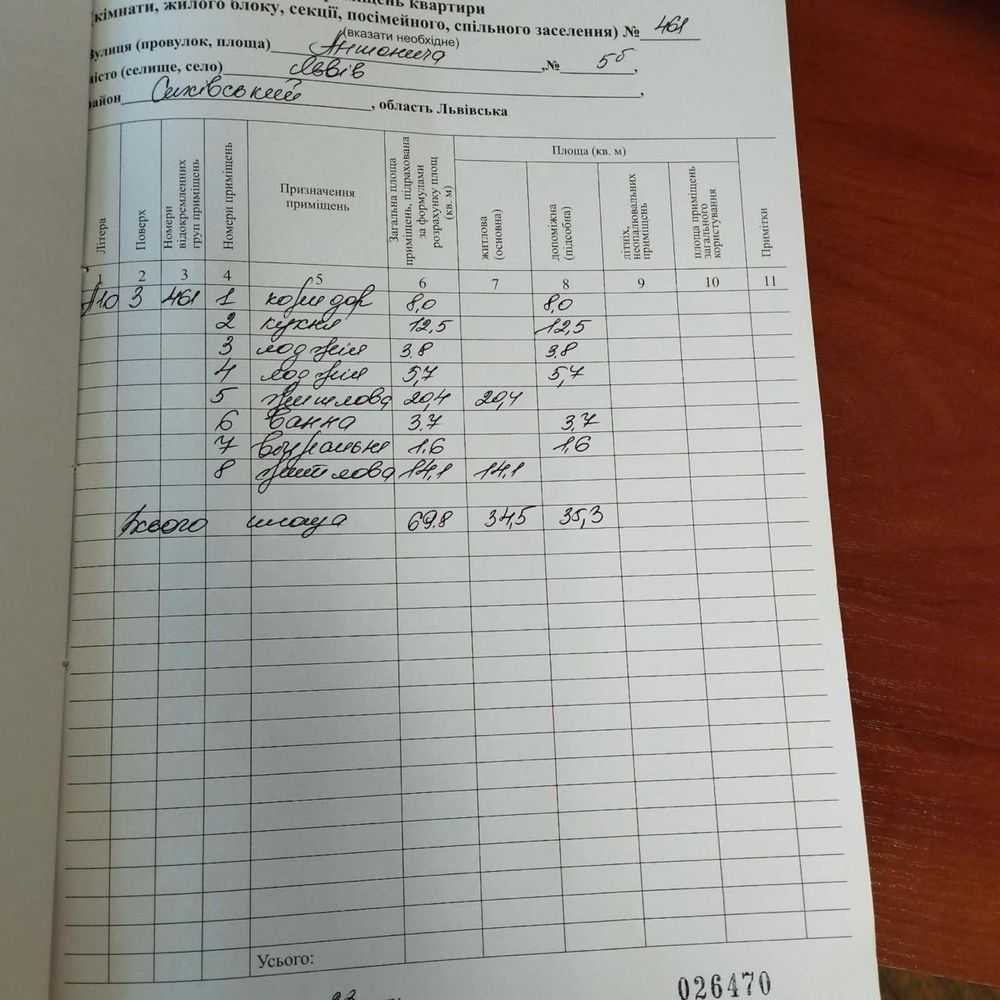 щень квартири
кімнати, жилого блоку, секції, посімейного, спільного заселення) № 461
(вказати необхідне)
Вулиця (провулок, площа) Антонича ,№ 5б ,
місто (селище, село) Львів ,
район Сихівський , область Львівська
Літера
Поверх
Номери відокремленних груп приміщень
Номери приміщень
Призначення приміщень
Загальна площа приміщень, підрахована за формулами розрахунку площ (кв. м)
Площа (кв. м)
житлова (основна)
допоміжна (підсобна)
літніх, неопалювальних приміщень
площа приміщень загального користування
Примітки
1 2 3 4 5 6 7 8 9 10 11
3 461 1 коридор 8,0 8,0
2 кухня 12,5 12,5
3 лоджія 3.8 3.8
4 лоджія 5,7 5,7
5 житлова 20,4 20,4
6 ванна 3.7 3.7
7 вбиральня 1,6 1,6
8 житлова 14,1 14,1
Всього площа 69.8 34,5 35,3
Усього:
026470